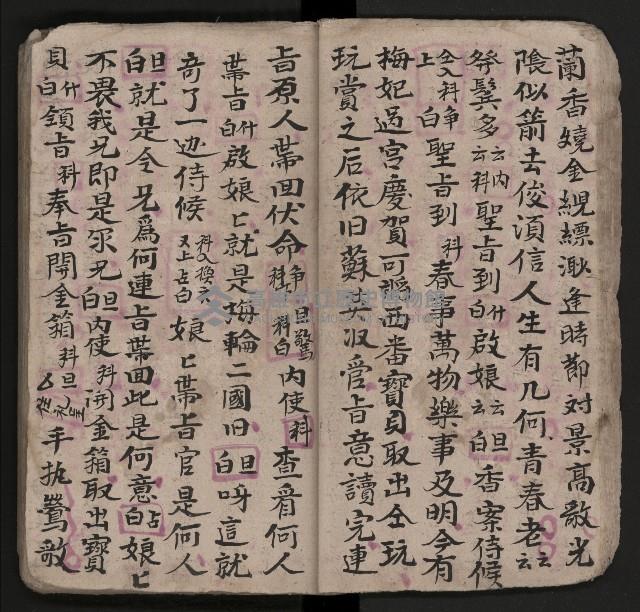 蘭香嬈金緄縹渺逢時節对景高歌光
陰似箭去俊湏信人生有几何青春老云云
鬂多云云内科聖旨到白什啟娘云云白旦香案侍候
上仝入科争白聖旨到科春事萬物樂事及明今有
梅妃过宮慶賀可謝西番寶貝取出仝玩
玩賞之后依旧蘇英收管旨意讀完連
旨原人帶回伏命争旦驚科科白内使科查看何人
帶旨白什啟娘匕就是梅輪二國旧白旦呀這就
奇了一边侍候科入換又上占白娘匕帶旨官是何人
白旦就是令兄爲何連旨帶回此是何意白占娘匕
不畏我兄即是尔兄白旦内使科開金箱取出寶
貝白什領旨科奉旨開金箱科旦手执鶯歌
高雄市立歷史博物館